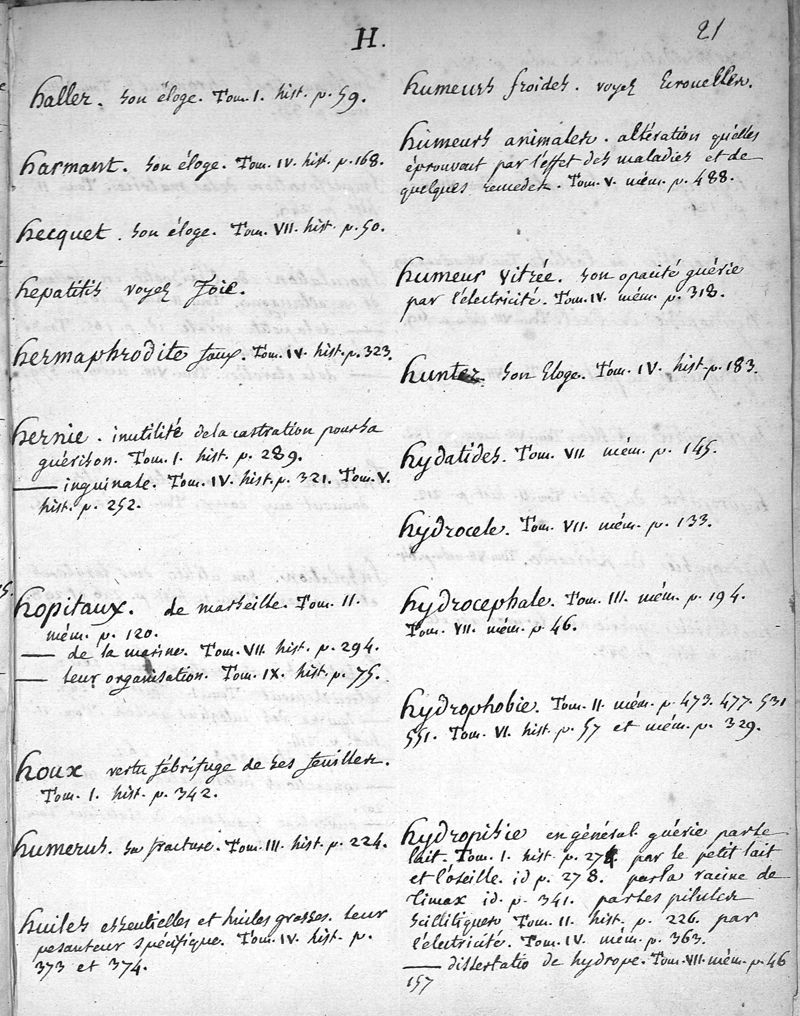 H.
21
haller. son éloge. Tom. I. hist. p. 59.
harmant. son éloge. Tom. IV. hist. p. 168.
hecquet. son éloge. Tom. VII. hist. p. 50.
hepatitis voyez foie.
hermaphrodite faux. Tom. IV. hist. p. 323.
hernie. inutilité de la castration pour sa
guérison. Tom. I. hist. p. 289.
— inguinale. Tom. IV. hist. p. 321. Tom. V.
hist. p. 252.
hopitaux. de marseille. Tom. II.
mém. p. 120.
— de la marine. Tom. VII. hist. p. 294.
— leur organisation. Tom. IX. hist. p. 75.
houx vertu fébrifuge de ses feuilles.
Tom. I. hist. p. 342.
humerus. sa fracture. Tom. III. hist. p. 224.
huiles essentielles et huiles grasses. leur
pesanteur spécifique. Tom. IV. hist. p.
373 et 374.
humeurs froides. voyez Ecrouelles.
humeurs animales. altération qu'elles
éprouvent par l'effet des maladies et de
quelques remedes. Tom. V. mém. p. 488.
humeur vitree. son opacité guérie
par l'électricité. Tom. IV. mém. p. 318.
hunter. son Eloge. Tom. IV. hist. p. 183.
hydatides. Tom. VII. mém. p. 145.
hydrocele. Tom. VII. mém. p. 133.
hydrocephale. Tom. III. mém. p. 194.
Tom. VII. mém. p. 46.
hydrophobie. Tom. II. mém. p. 473. 477. 531
551. Tom. VI. hist. p. 57 et mém. p. 329.
hydropisie en général. guérie par le
lait. Tom. I. hist. p. 278. par le petit lait
et l'oseille. id p. 278. par la racine de
Timax id. p. 341. par les pilules
scillitiques Tom. II. hist. p. 226. par
l'électricité. Tom. IV. mém. p. 363.
— dissertatio de hydrope. Tom. VII. mém. p. 46
157